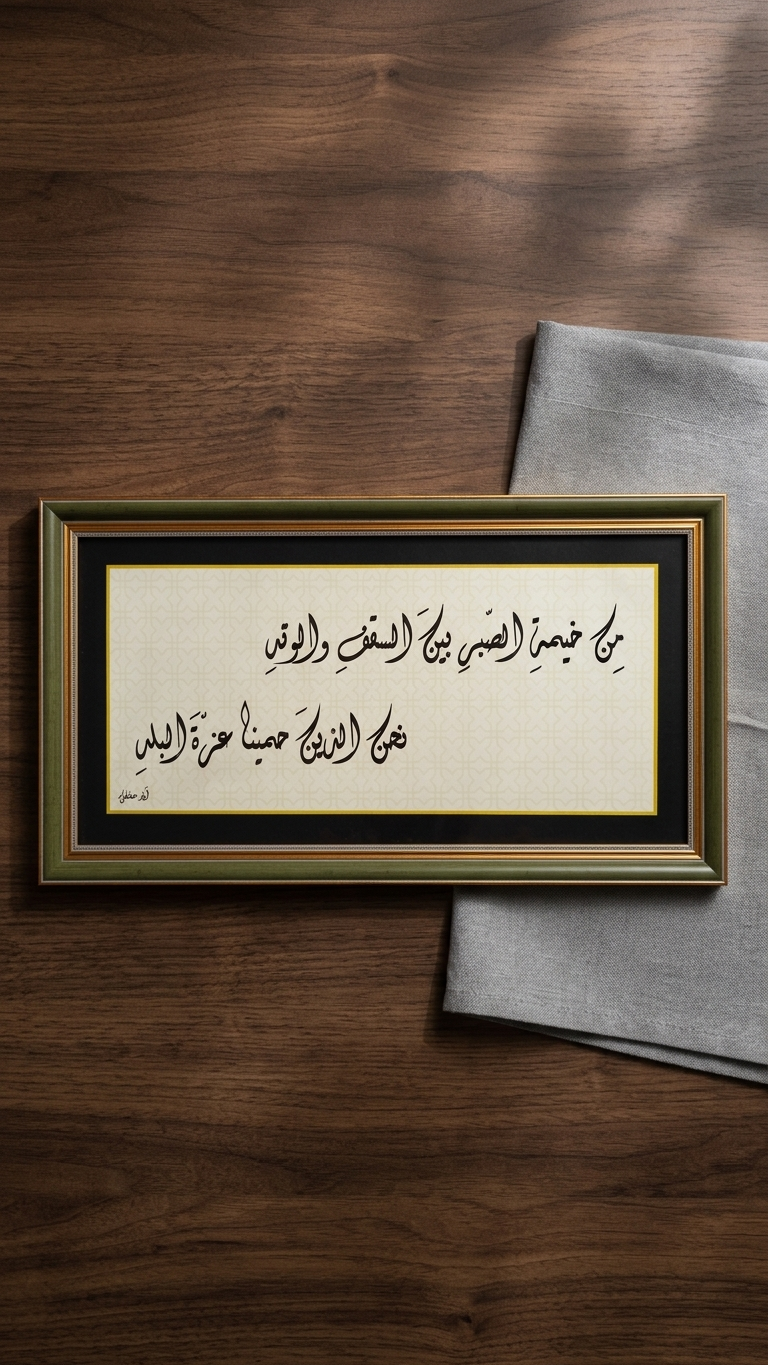 مِن خيمةِ الصّبرِ بينَ السقفِ والوتدِ
نحن الذينَ حمينا عزّةَ البلدِ